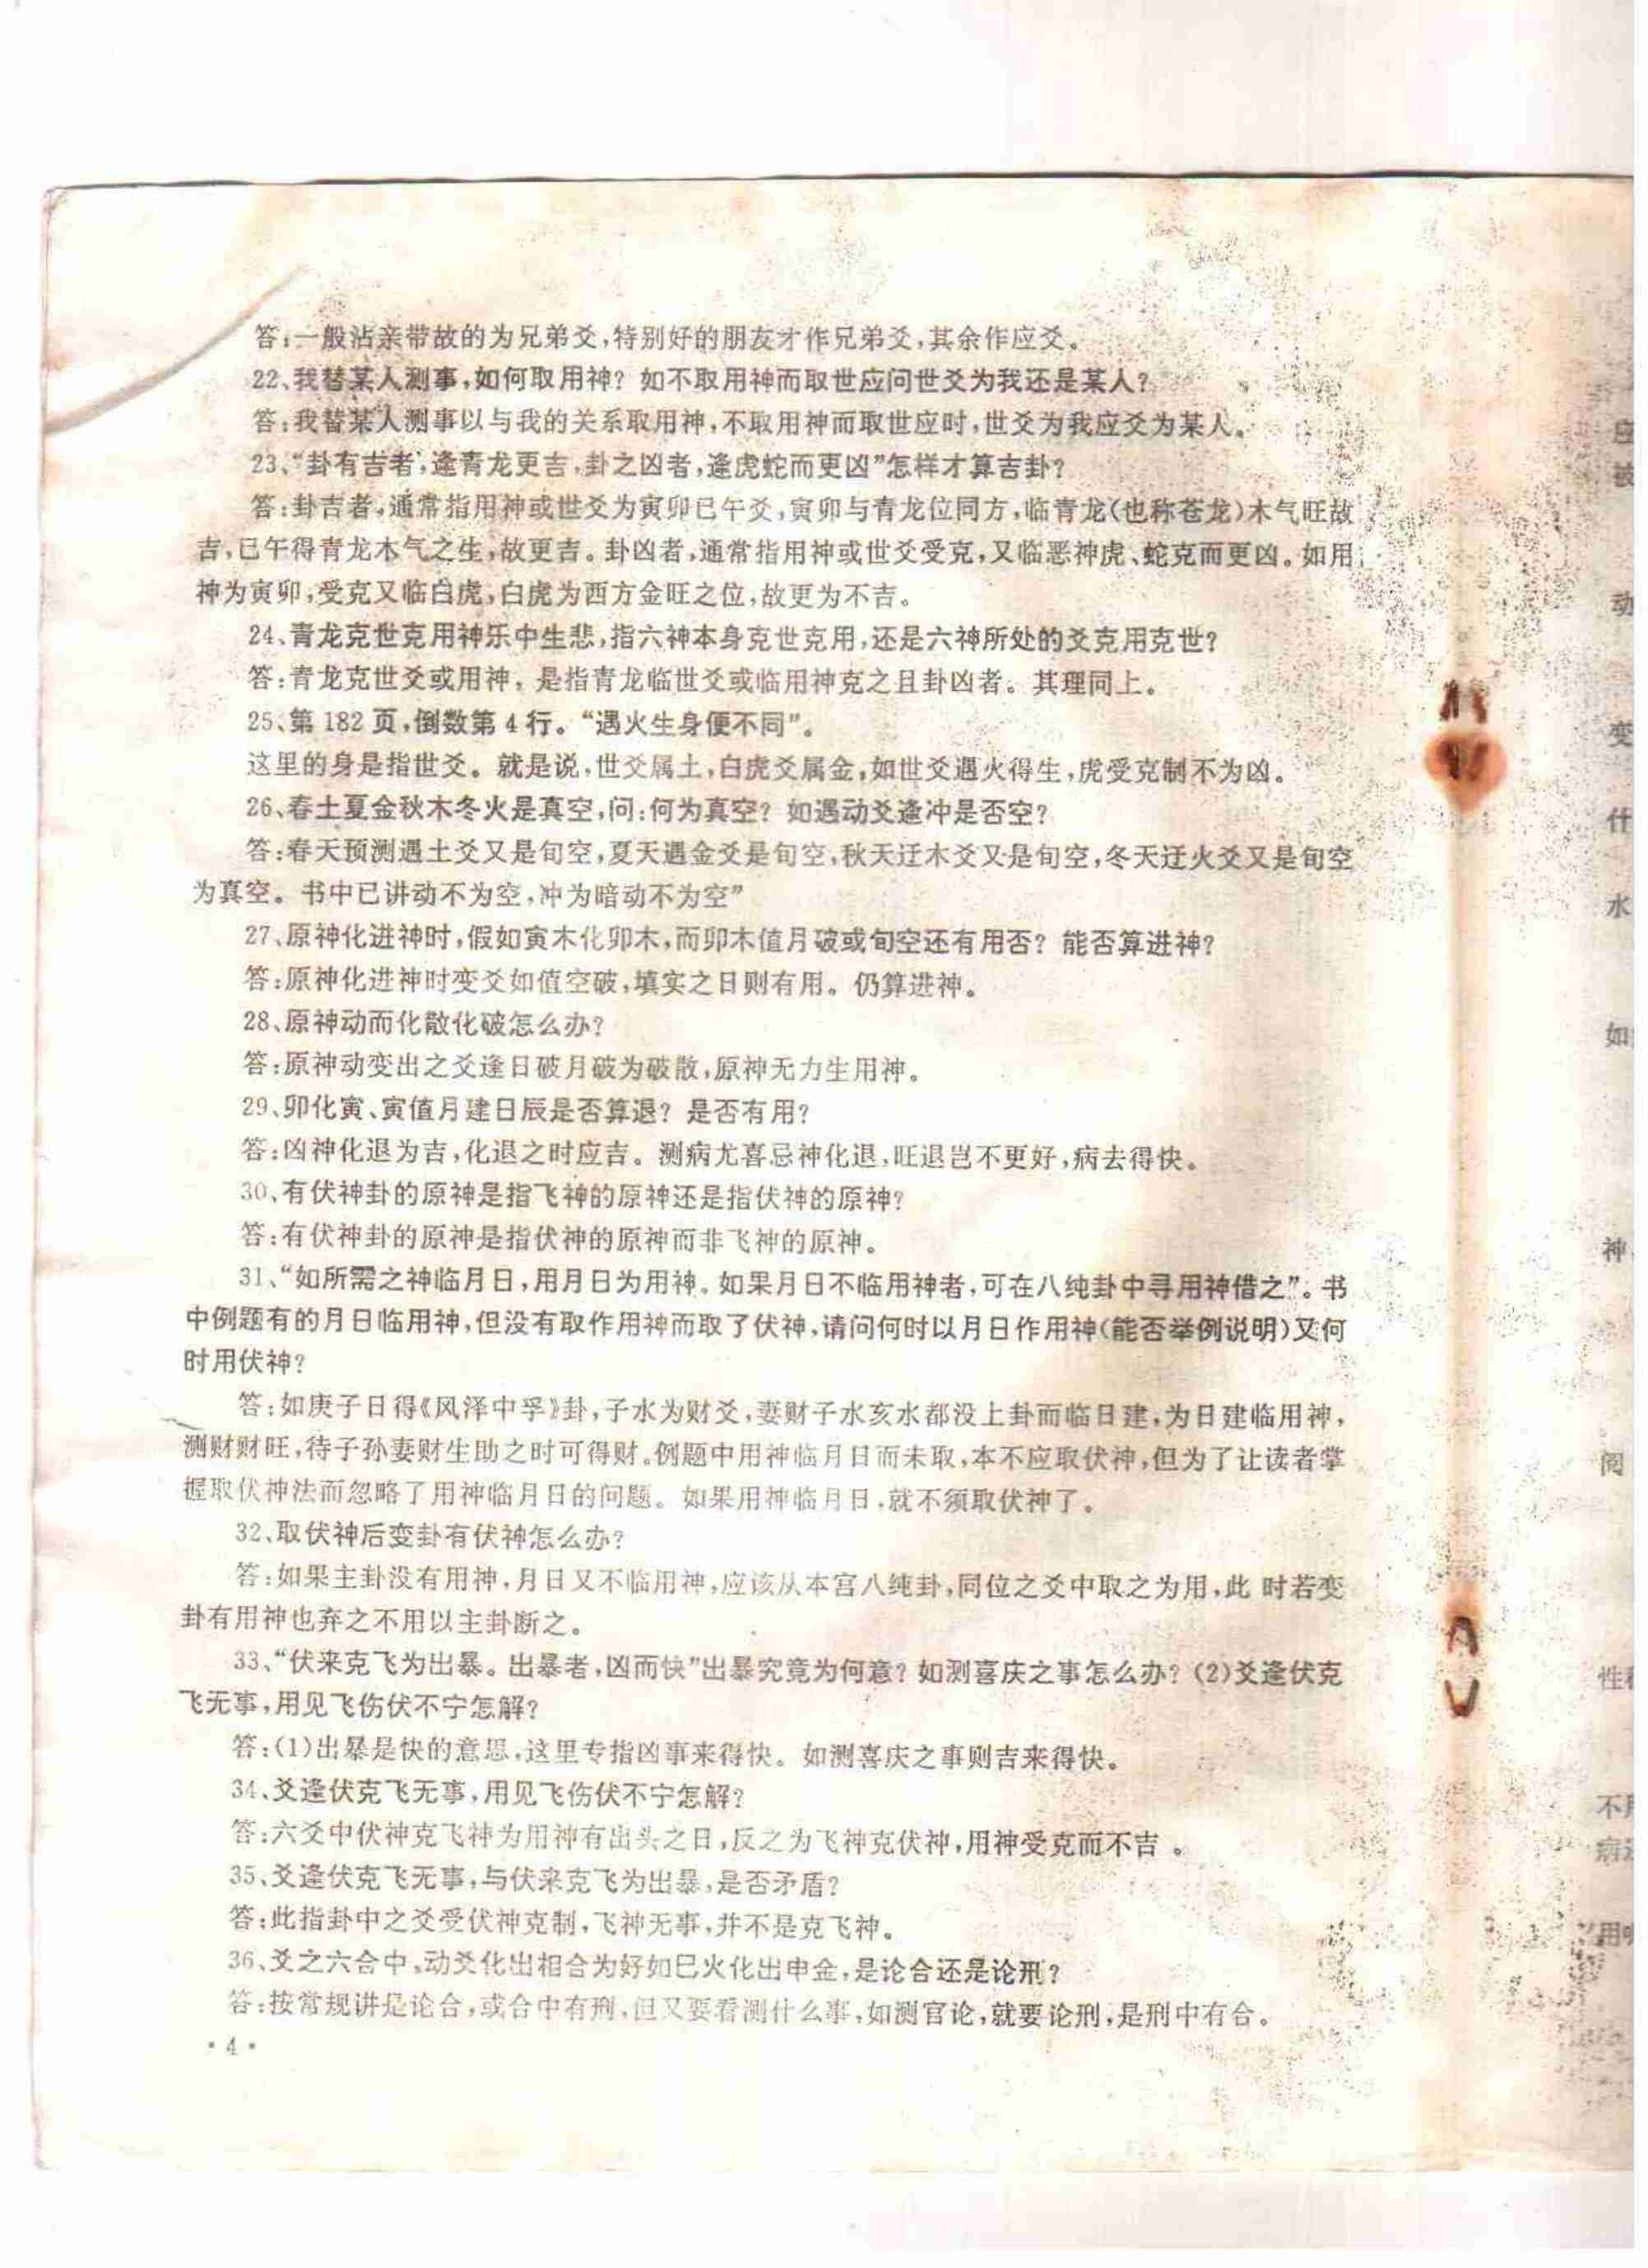 答:一般沾亲带故的为兄弟爻,特别好的朋友才作兄弟爻,其余作应爻。
22、我替某人测事,如何取用神?如不取用神而取世应问世爻为我还是某人?
答:我替某人测事以与我的关系取用神,不取用神而取世应时,世爻为我应爻为某人。
23、“卦有吉者,逢青龙更吉,卦之凶者,逢虎蛇而更凶”怎样才算吉卦?
答:卦吉者,通常指用神或世爻为寅卯巳午爻,寅卯与青龙位同方,临青龙(也称苍龙)木气旺故
吉,巳午得青龙木气之生,故更吉。卦凶者,通常指用神或世爻受克,又临恶神虎、蛇克而更凶。如用
神为寅卯,受克又临白虎,白虎为西方金旺之位,故更为不吉。
24、青龙克世克用神乐中生悲,指六神本身克世克用,还是六神所处的爻克用克世?
答:青龙克世爻或用神,是指青龙临世爻或临用神克之且卦凶者。其理同上。
25、第182页,倒数第4行。“遇火生身便不同”。
这里的身是指世爻。就是说,世爻属土,白虎爻属金,如世爻遇火得生,虎受克制不为凶。
26、春土夏金秋木冬火是真空,问:何为真空?如遇动爻逢冲是否空?
答:春天预测遇土爻又是旬空,夏天遇金爻是旬空,秋天迂木爻又是旬空,冬天迂火爻又是旬空
为真空。书中已讲动不为空,冲为暗动不为空”
27、原神化进神时,假如寅木化卯木,而卯木值月破或旬空还有用否?能否算进神?
答:原神化进神时变爻如值空破,填实之日则有用。仍算进神。
28、原神动而化散化破怎么办?
答:原神动变出之爻逢日破月破为破散,原神无力生用神。
29、卯化寅、寅值月建日辰是否算退?是否有用?
答:凶神化退为吉,化退之时应吉。测病尤喜忌神化退,旺退岂不更好,病去得快。
30、有伏神卦的原神是指飞神的原神还是指伏神的原神?
答:有伏神卦的原神是指伏神的原神而非飞神的原神。
31、“如所需之神临月日,用月日为用神。如果月日不临用神者,可在八纯卦中寻用神借之”。书
中例题有的月日临用神,但没有取作用神而取了伏神,请问何时以月日作用神(能否举例说明)又何
时用伏神?
答:如庚子日得《风泽中孚》卦,子水为财爻,妻财子水亥水都没上卦而临日建,为日建临用神,
测财财旺,待子孙妻财生助之时可得财。例题中用神临月日而未取,本不应取伏神,但为了让读者掌
握取伏神法而忽略了用神临月日的问题。如果用神临月日,就不须取伏神了。
32、取伏神后变卦有伏神怎么办?
答:如果主卦没有用神,月日又不临用神,应该从本宫八纯卦,同位之爻中取之为用,此 时若变
卦有用神也弃之不用以主卦断之。
33、“伏来克飞为出暴。出暴者,凶而快”出暴究竟为何意?如测喜庆之事怎么办?(2)爻逢伏克
飞无事,用见飞伤伏不宁怎解?
答:(1)出暴是快的意思,这里专指凶事来得快。如测喜庆之事则吉来得快。
34、爻逢伏克飞无事,用见飞伤伏不宁怎解?
答:六爻中伏神克飞神为用神有出头之日,反之为飞神克伏神,用神受克而不吉。
35、爻逢伏克飞无事,与伏来克飞为出暴,是否矛盾?
答:此指卦中之爻受伏神克制,飞神无事,并不是克飞神。
36、爻之六合中,动爻化出相合为好如巳火化出申金,是论合还是论刑?
答:按常规讲是论合,或合中有刑,但又要看测什么事,如测官论,就要论刑,是刑中有合。
·4·
应
被
动
变
什
水
如
神
阅
性
不
病
用